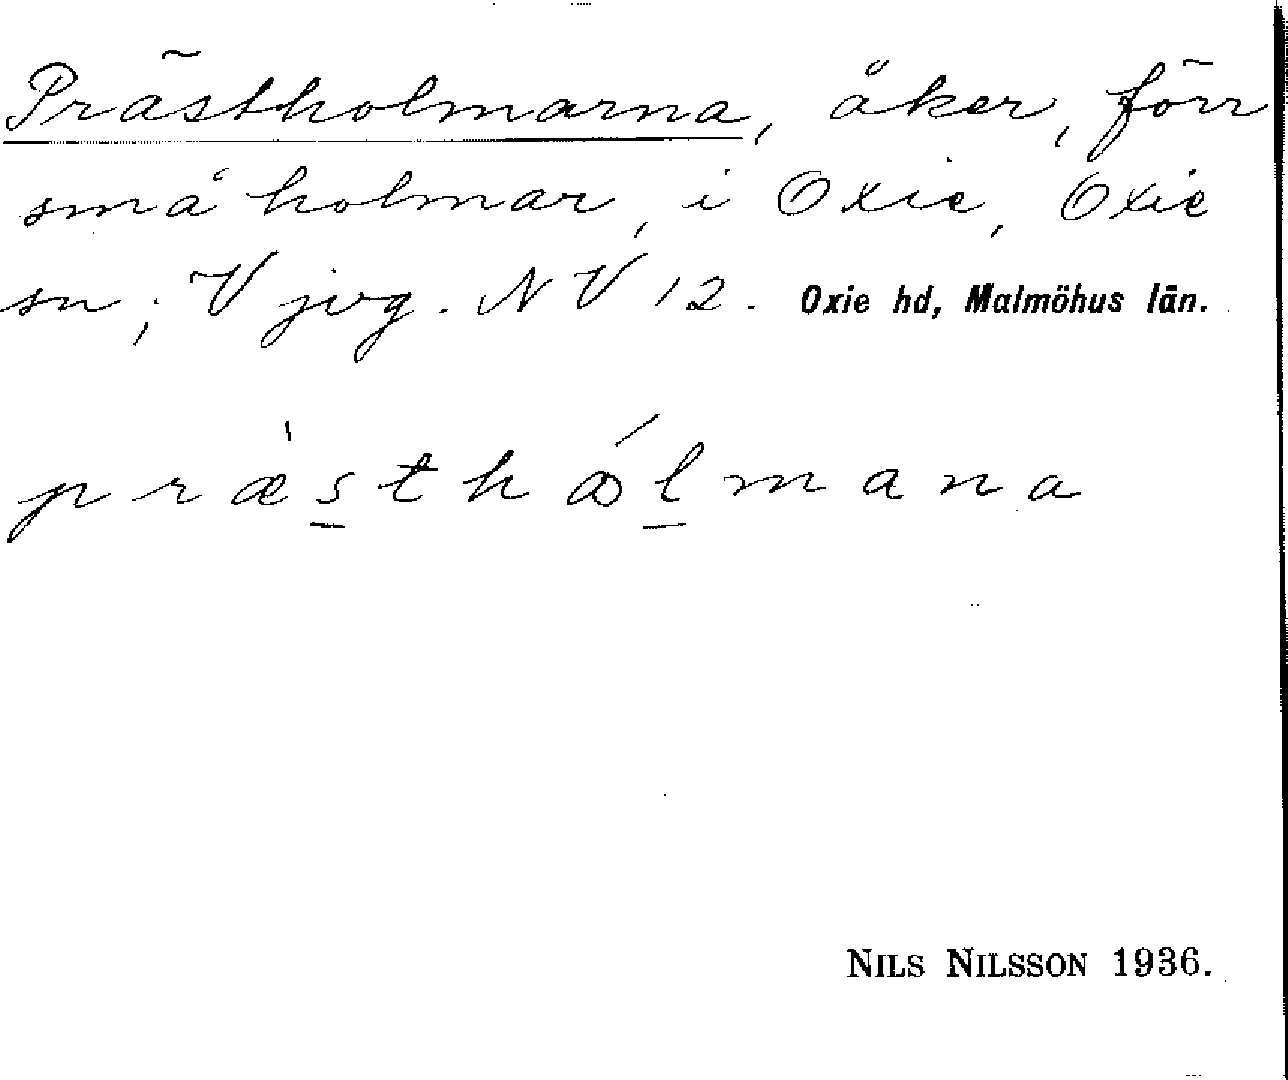 Prästholmarna, åker, förr
små holmar, i Oxie, Oxie
sn; V jvg. NV 12. Oxie hd, Malmöhus län.
præ̀s̲thɷ́l̲mana
NILS NILSSON 1936.